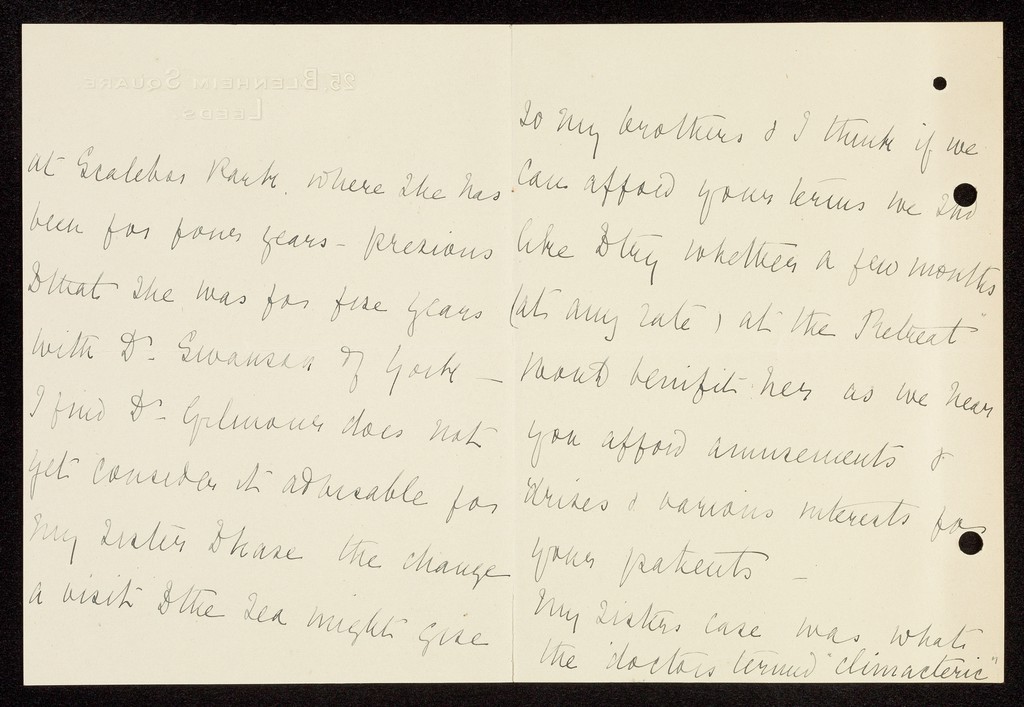 25, BLENHEIM SQUARE
LEEDS.
at Scalebor Park. where she has
been for four years - previous
to that she was for five years
with Dr. Swanson of York —
I find Dr. Gilmour does not
yet consider it advisable for
my sister to have the change
a visit to the sea might give
to my brothers & I think if we
can afford your terms we shd
like to try whether a few months
(at any rate) at the Retreat"
would benifit her as we hear
you afford amusements &
drives & various interests for
your patients —
My sisters case was what
the doctors termed "climacteric"